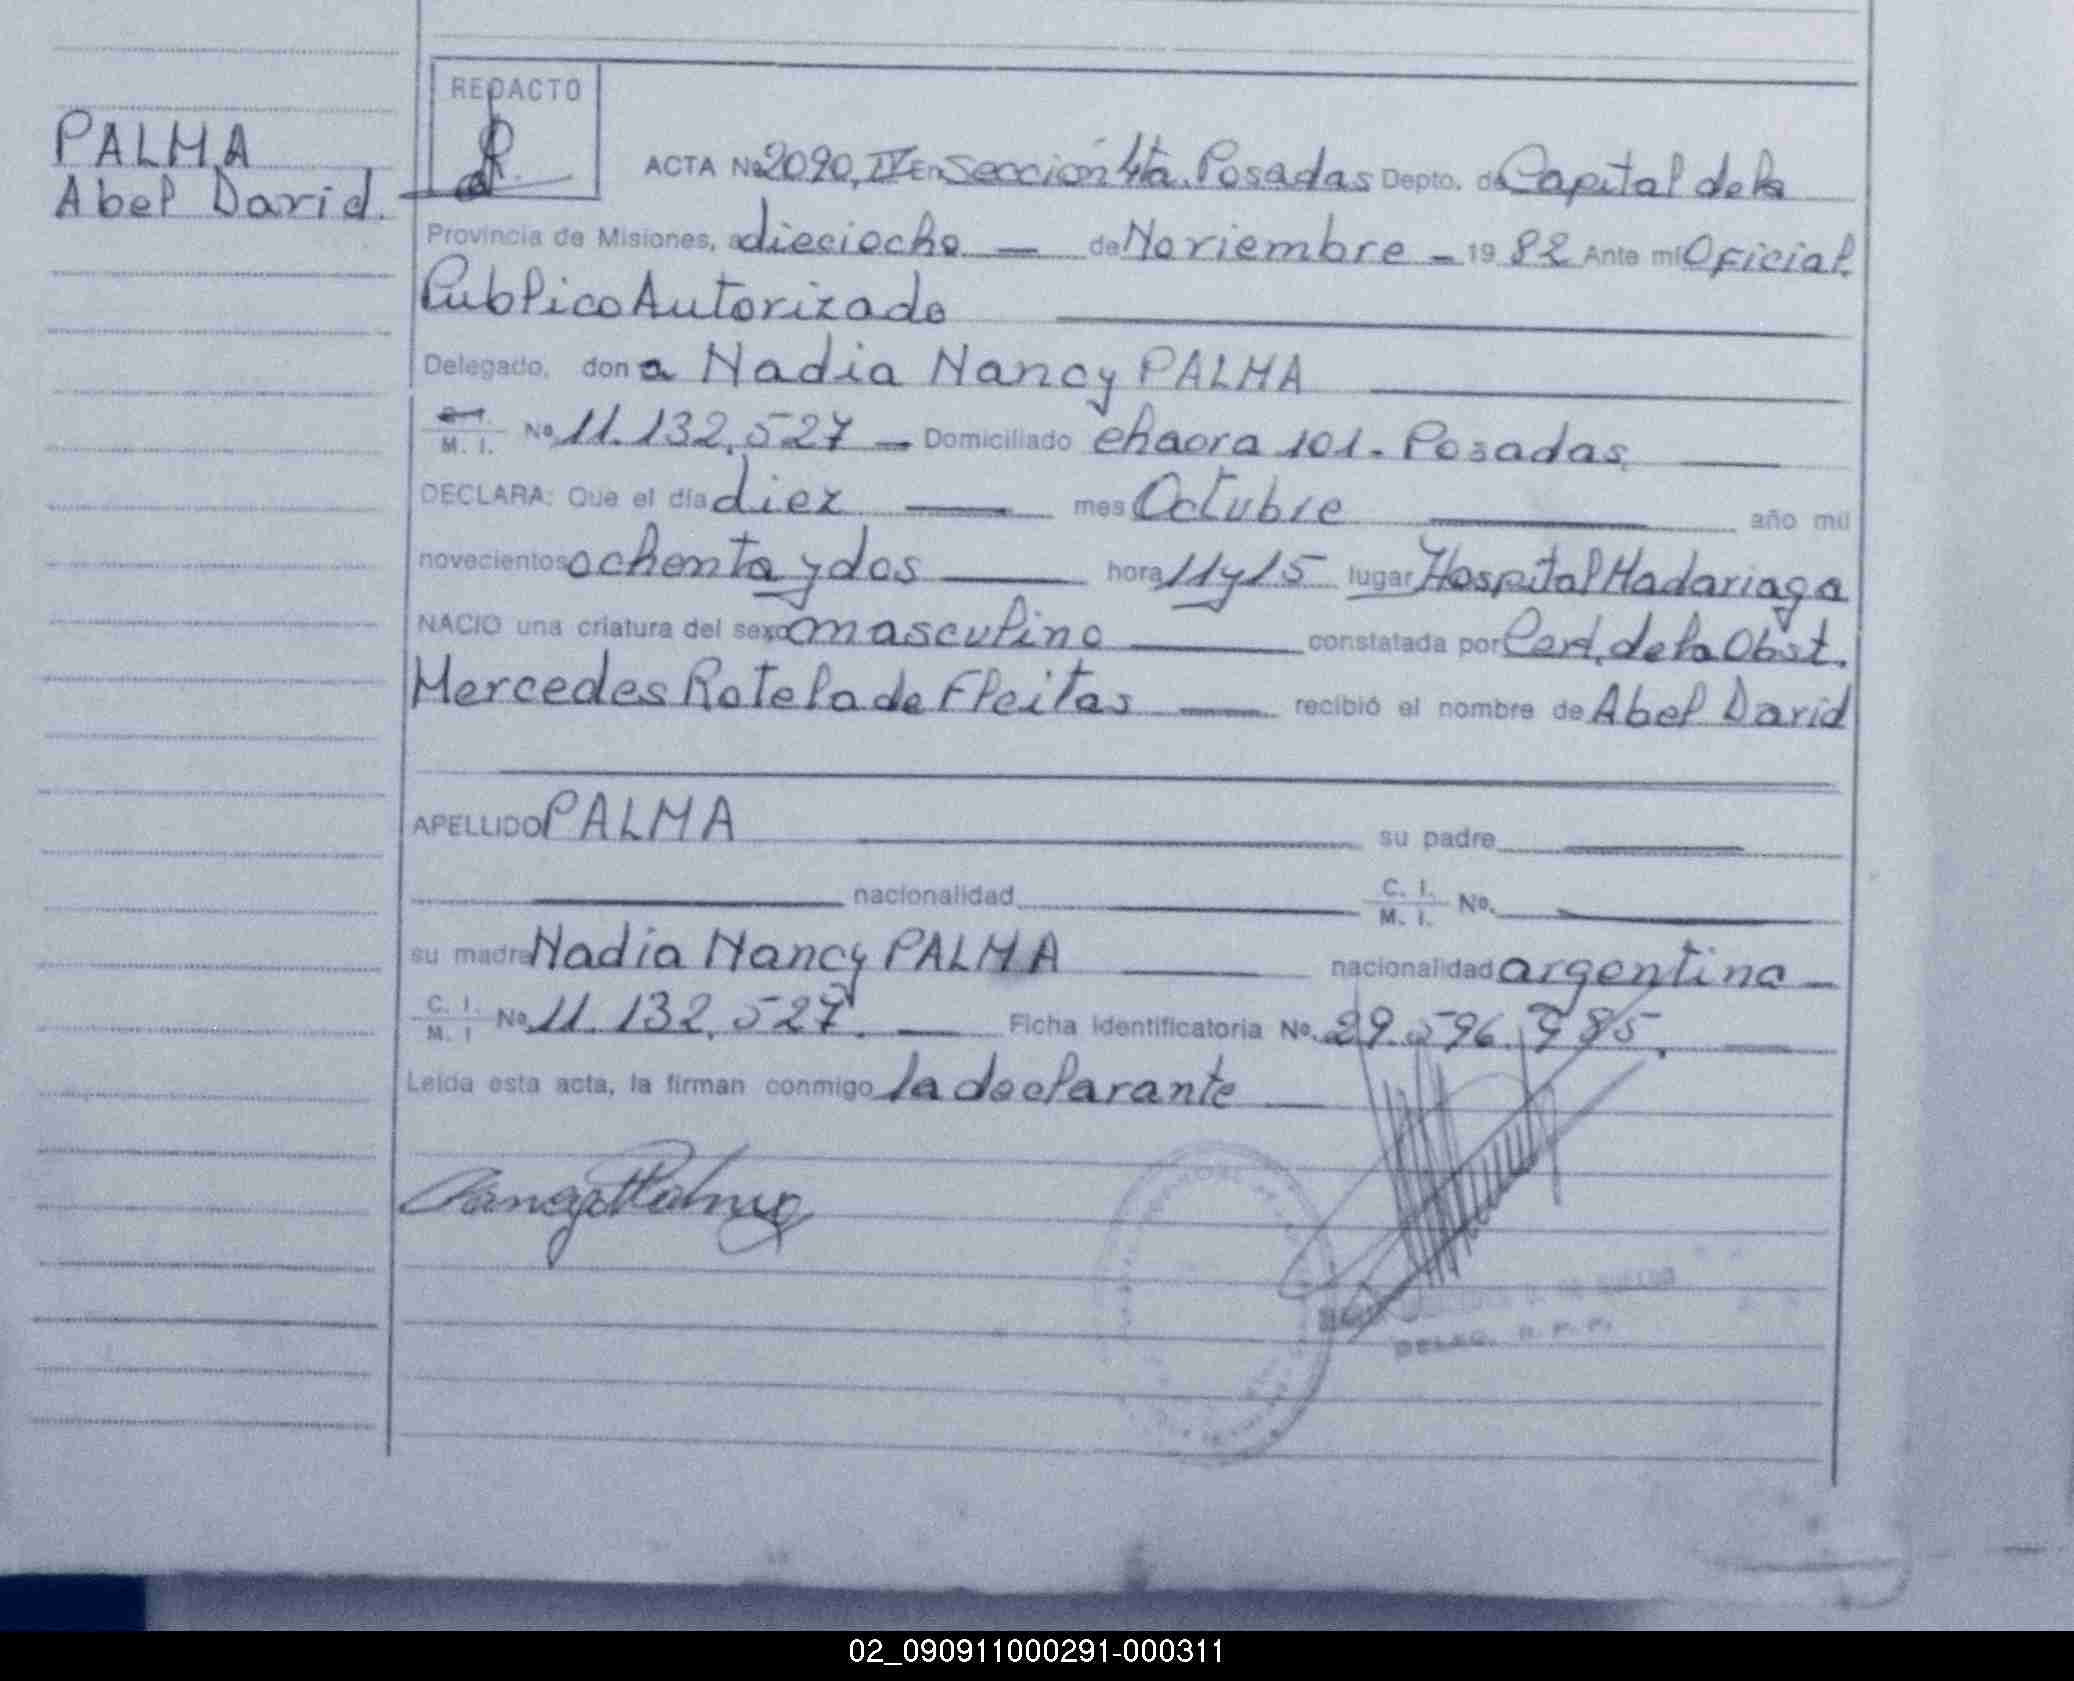 PALMA
Abel David.
REDACTO
ACTA No 2090, IV En Sección 4ta. Posadas Depto. de Capital de la
Provincia de Misiones, a dieciocho — de Noviembre - 1982 Ante mí Oficial
Publico Autorizado
Delegado, don a Nadia Nancy PALMA
M. I. No 11.132.527 - Domiciliado chacra 101. Posadas.
DECLARA: Que el día diez — mes Octubre — año mil
novecientos ochenta y dos — hora 11 y 15 lugar Hospital Madariaga
NACIO una criatura del sexo masculino — constatada por Cert. de la Obst.
Mercedes Rotela de Fleitas — recibió el nombre de Abel David
APELLIDO PALMA — su padre —
— nacionalidad — C. I. M. I. No. —
su madre Nadia Nancy PALMA — nacionalidad argentina —
C. I. M. I No 11.132.527. — Ficha identificatoria No. 29.596.985. —
Leída esta acta, la firman conmigo la declarante —
DELEG. R. P. P.
02_090911000291-000311